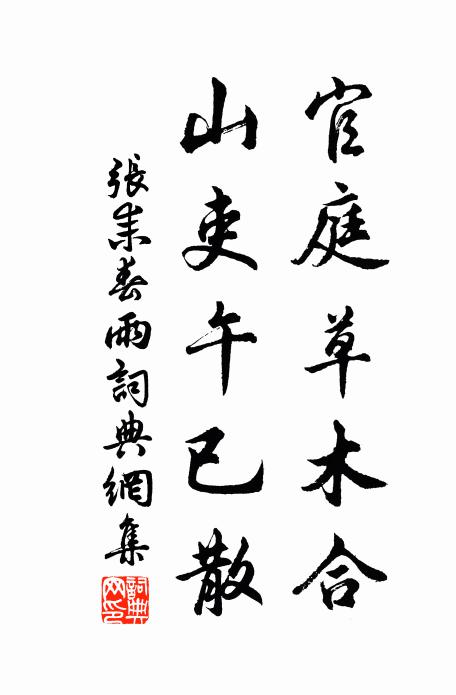 官庭草木合
山吏午已散
張耒春雨詞典網集
詞典网印